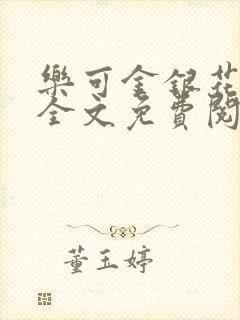 樂可金銀花
全文免費閱
董玉婷